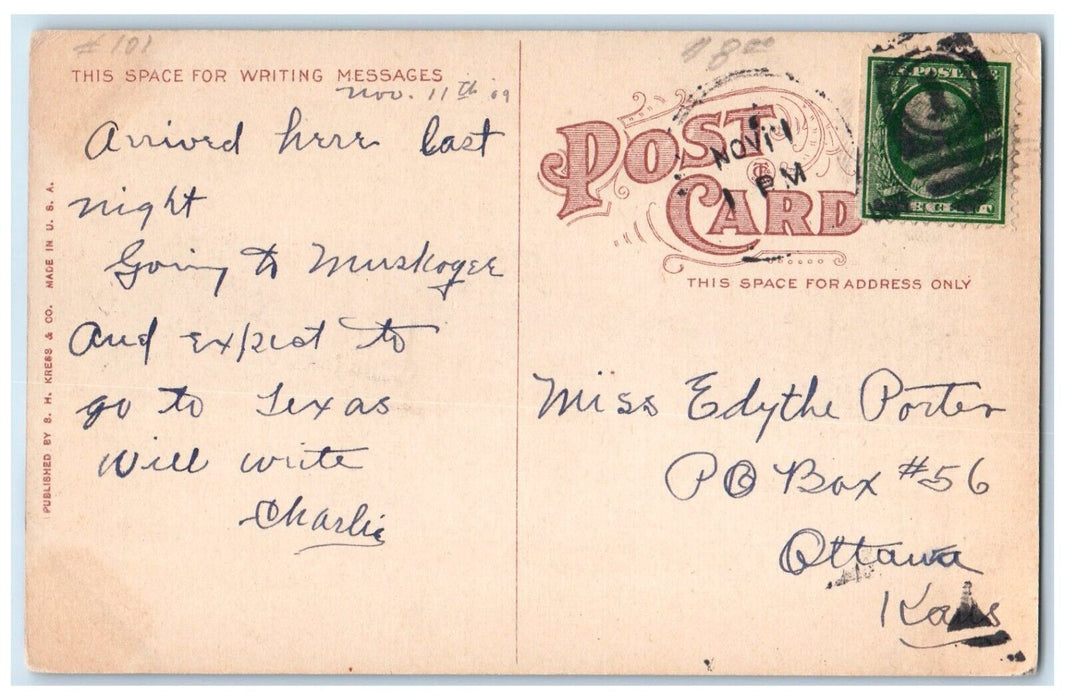 # 101
THIS SPACE FOR WRITING MESSAGES
Nov. 11th 09
Arrived here last
night
Going to Muskogee
and expect to
go to Texas
Will write
Charlie
PUBLISHED BY S. H. KRESS & CO. MADE IN U. S. A.
POST CARD
NOV 11
1 PM
THIS SPACE FOR ADDRESS ONLY
POSTAGE
Miss Edythe Porter
PO Box #56
Ottawa
Kans